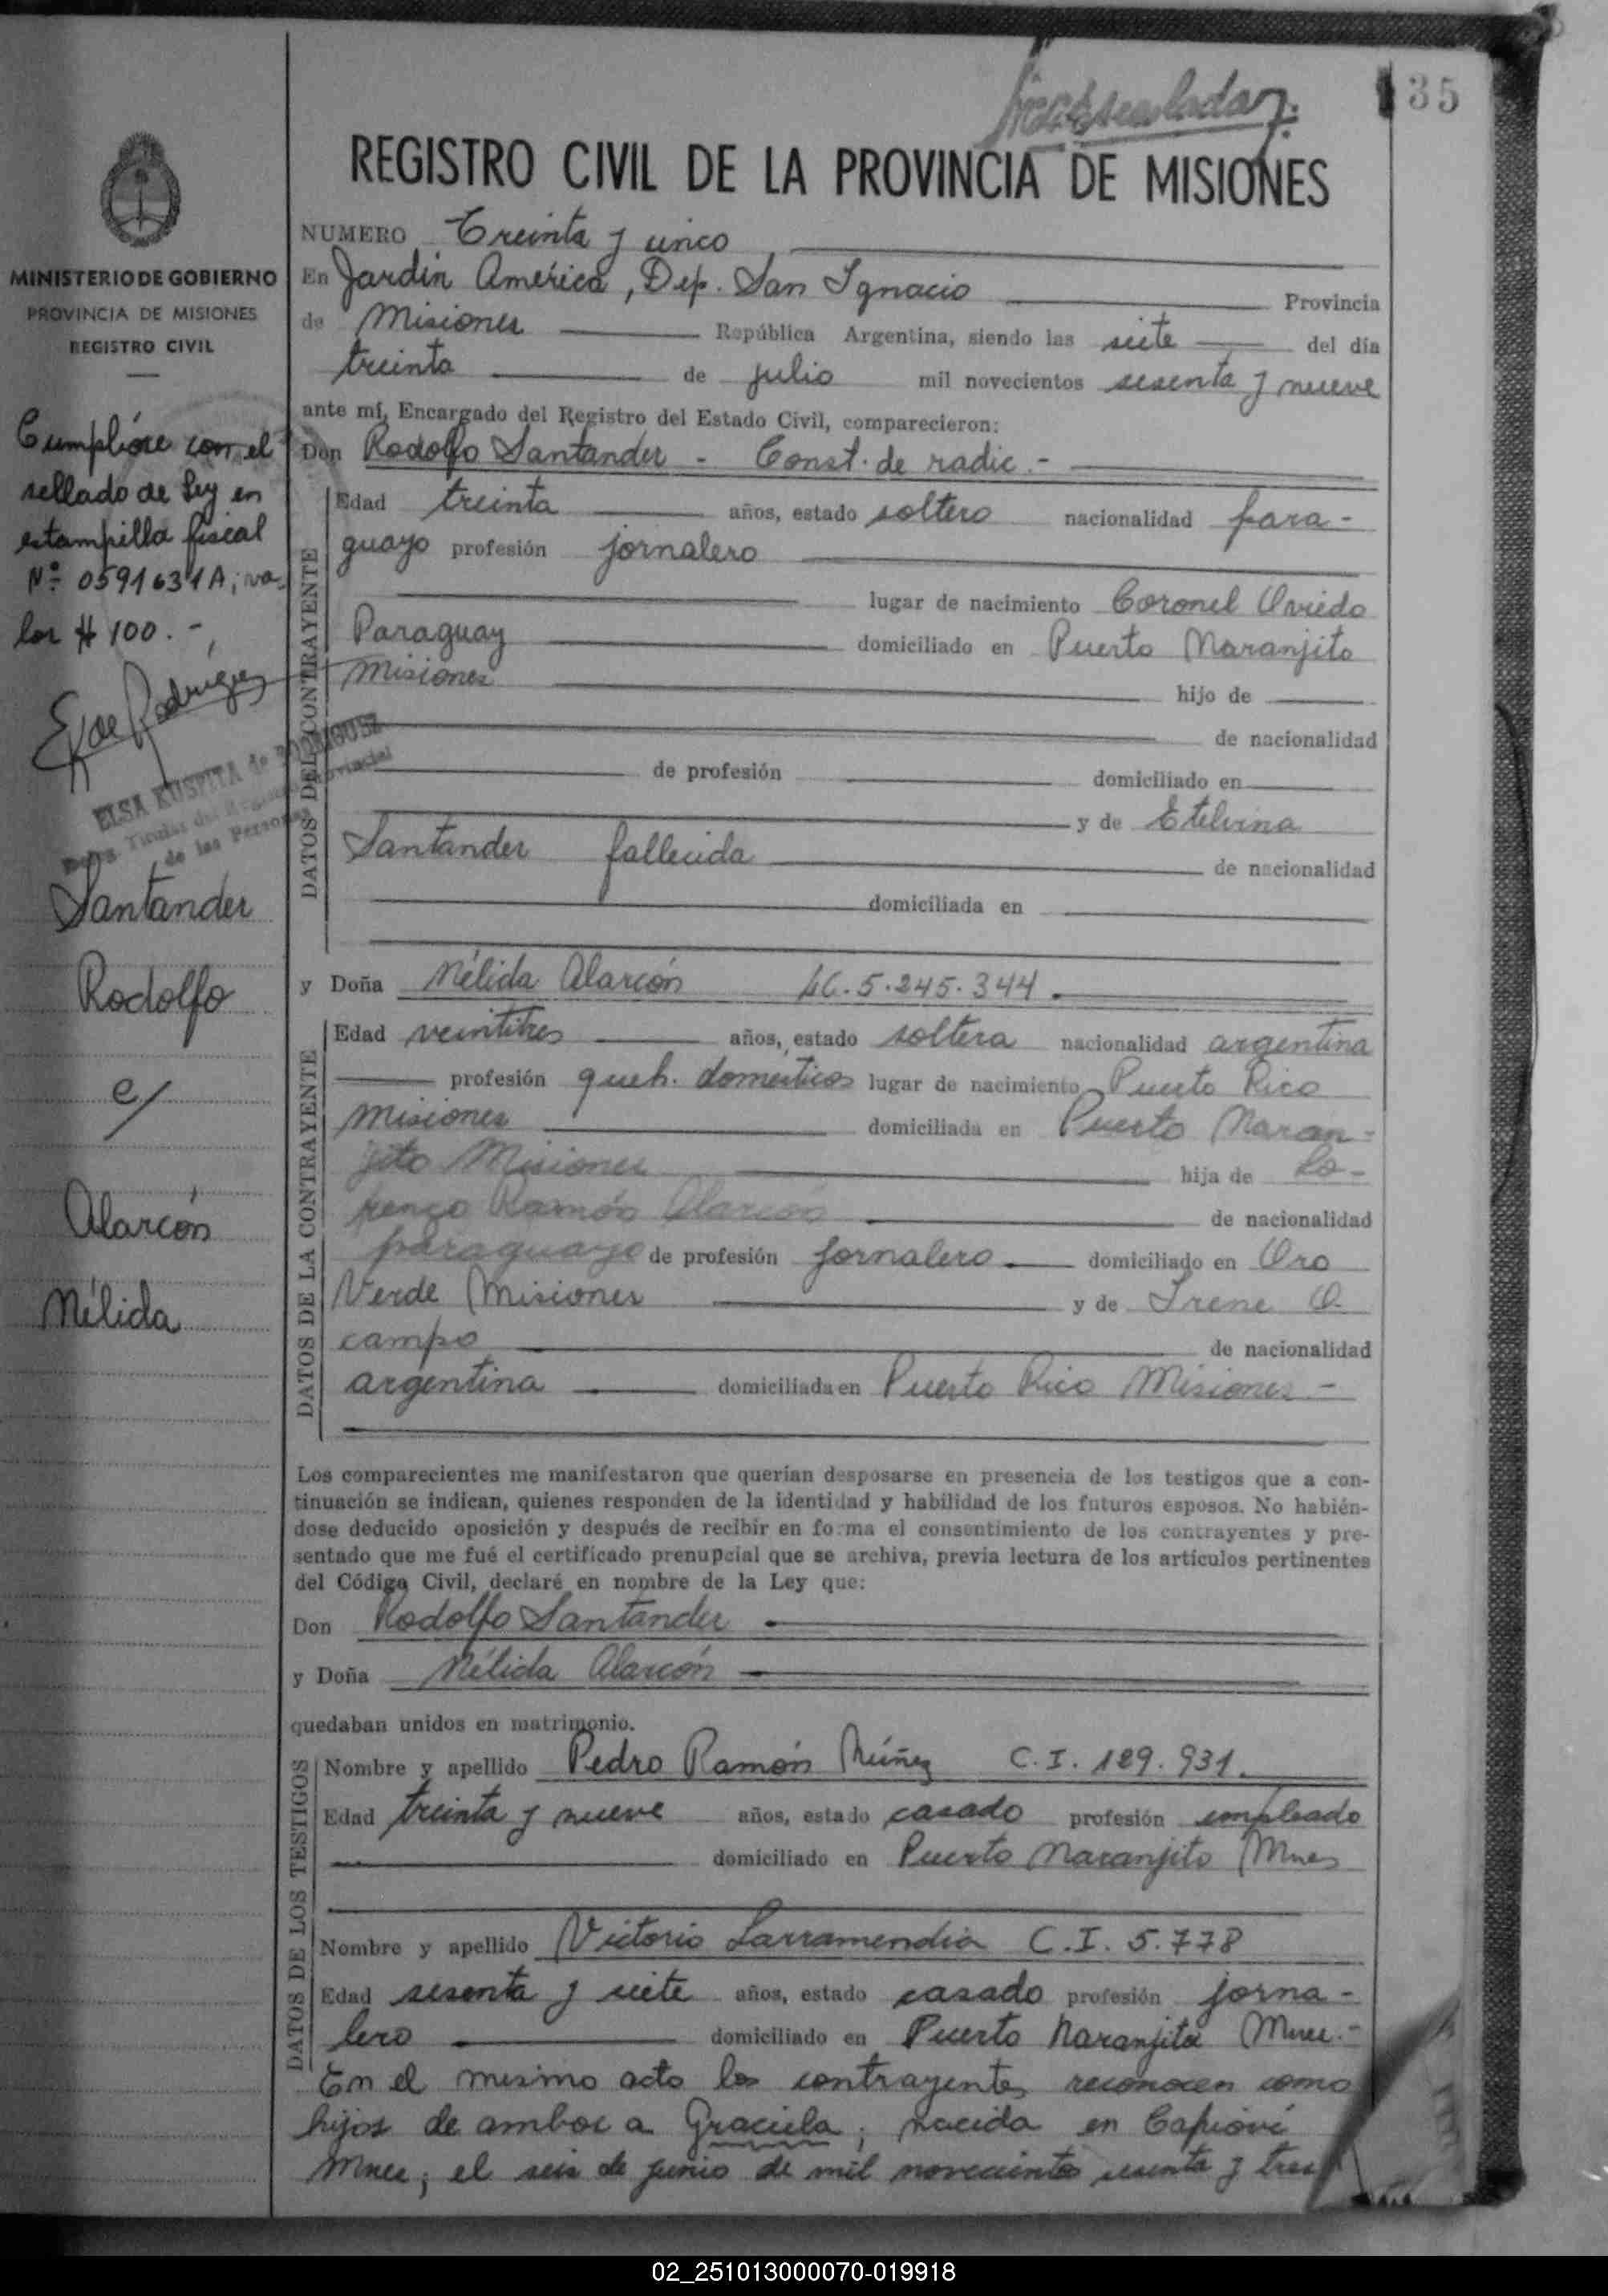 35
REGISTRO CIVIL DE LA PROVINCIA DE MISIONES
MINISTERIO DE GOBIERNO
PROVINCIA DE MISIONES
REGISTRO CIVIL
Cumplióse con el
sellado de Ley en
estampilla fiscal
Nº 0591631A; va-
lor $ 100.-
E K de Rodríguez
ELSA KUSPITA de RODRIGUEZ
de las Personas
Santander
Rodolfo
c/
Alarcón
Nélida
NUMERO Treinta y cinco
En Jardín América, Dep. San Ignacio Provincia
de Misiones República Argentina, siendo las siete del día
treinta de julio mil novecientos sesenta y nueve
ante mí, Encargado del Registro del Estado Civil, comparecieron:
Don Rodolfo Santander - Const. de radic.-
DATOS DEL CONTRAYENTE
Edad treinta años, estado soltero nacionalidad para-
guayo profesión jornalero
lugar de nacimiento Coronel Oviedo
Paraguay domiciliado en Puerto Naranjito
Misiones hijo de
de nacionalidad
de profesión domiciliado en
y de Etelvina
Santander fallecida de nacionalidad
domiciliada en
y Doña Nélida Alarcón LC. 5.245.344.
DATOS DE LA CONTRAYENTE
Edad veintitres años, estado soltera nacionalidad argentina
profesión queh. domesticos lugar de nacimiento Puerto Rico
Misiones domiciliada en Puerto Naran-
jito Misiones hija de Lo-
renzo Ramón Alarcón de nacionalidad
paraguayo de profesión jornalero domiciliado en Oro
Verde Misiones y de Irene O-
campo de nacionalidad
argentina domiciliada en Puerto Rico Misiones -
Los comparecientes me manifestaron que querían desposarse en presencia de los testigos que a con-
tinuación se indican, quienes responden de la identidad y habilidad de los futuros esposos. No habién-
dose deducido oposición y después de recibir en forma el consentimiento de los contrayentes y pre-
sentado que me fué el certificado prenupcial que se archiva, previa lectura de los artículos pertinentes
del Código Civil, declaré en nombre de la Ley que:
Don Rodolfo Santander
y Doña Nélida Alarcón
quedaban unidos en matrimonio.
DATOS DE LOS TESTIGOS
Nombre y apellido Pedro Ramón Núñez C.I. 129.931.
Edad treinta y nueve años, estado casado profesión empleado
domiciliado en Puerto Naranjito Mnes
Nombre y apellido Victorio Larramendia C.I. 5.778
Edad sesenta y siete años, estado casado profesión jorna-
lero domiciliado en Puerto Naranjito Mnes.-
En el mismo acto los contrayentes reconocen como
hijos de ambos a Graciela; nacida en Capioví
Mnes; el seis de junio de mil novecientos sesenta y tres
02_251013000070-019918